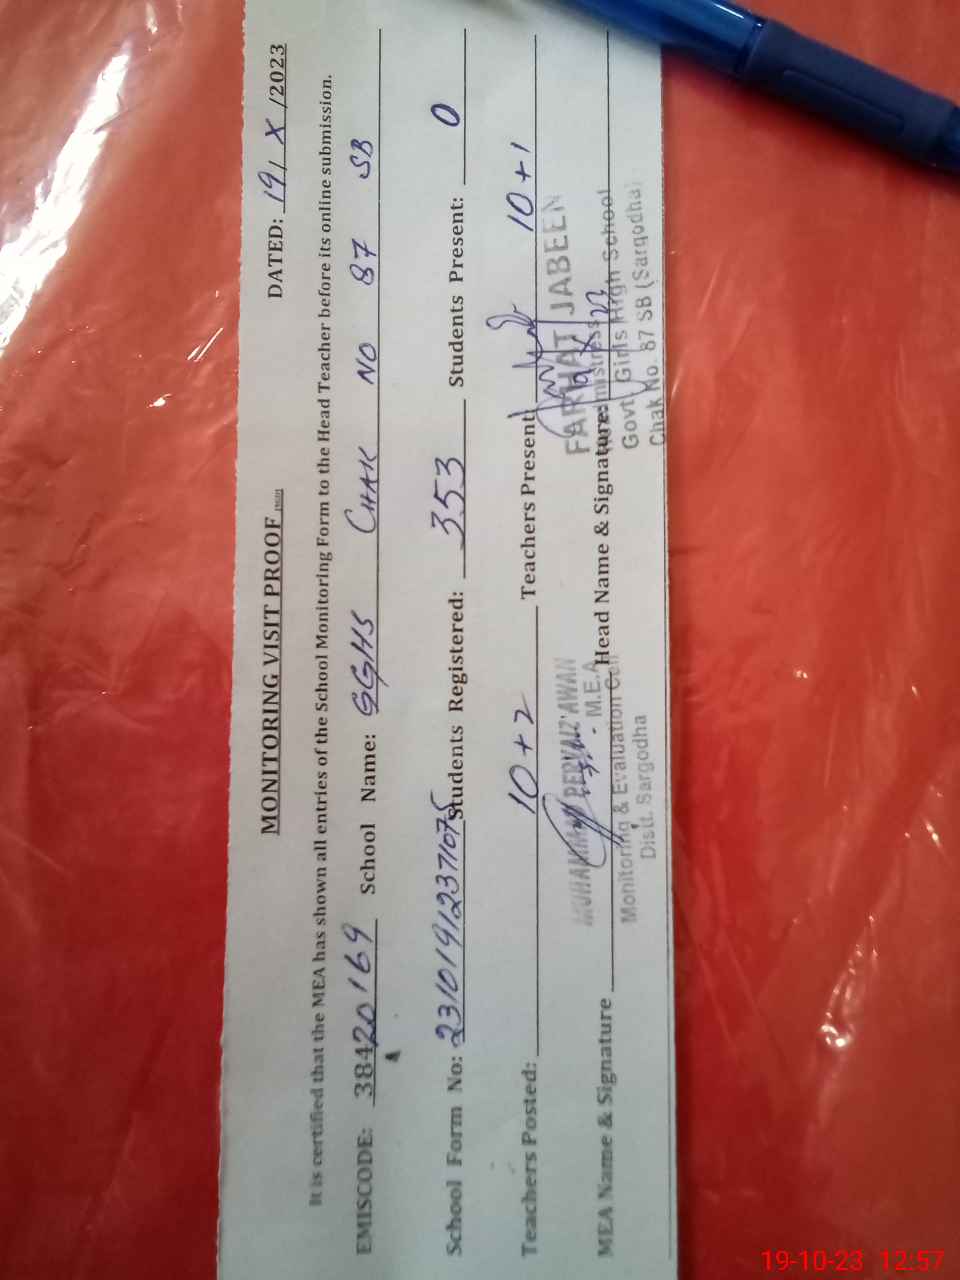 MONITORING VISIT PROOF
DATED: 19/ X /2023
It is certified that the MEA has shown all entries of the School Monitoring Form to the Head Teacher before its online submission.
EMISCODE: 38420169 School Name: GGHS CHAK NO 87 SB
School Form No: 23101912371075 Students Registered: 353 Students Present: 0
Teachers Posted: 10+2 Teachers Present: 10+1
MEA Name & Signature Head Name & Signature:
MUHAMMAD PERVAIZ AWAN
M.E.A
Monitoring & Evaluation Cell
Distt. Sargodha
FARHAT JABEEN
Headmistress
Govt. Girls High School
Chak No. 87 SB (Sargodha)
19-10-23 12:57